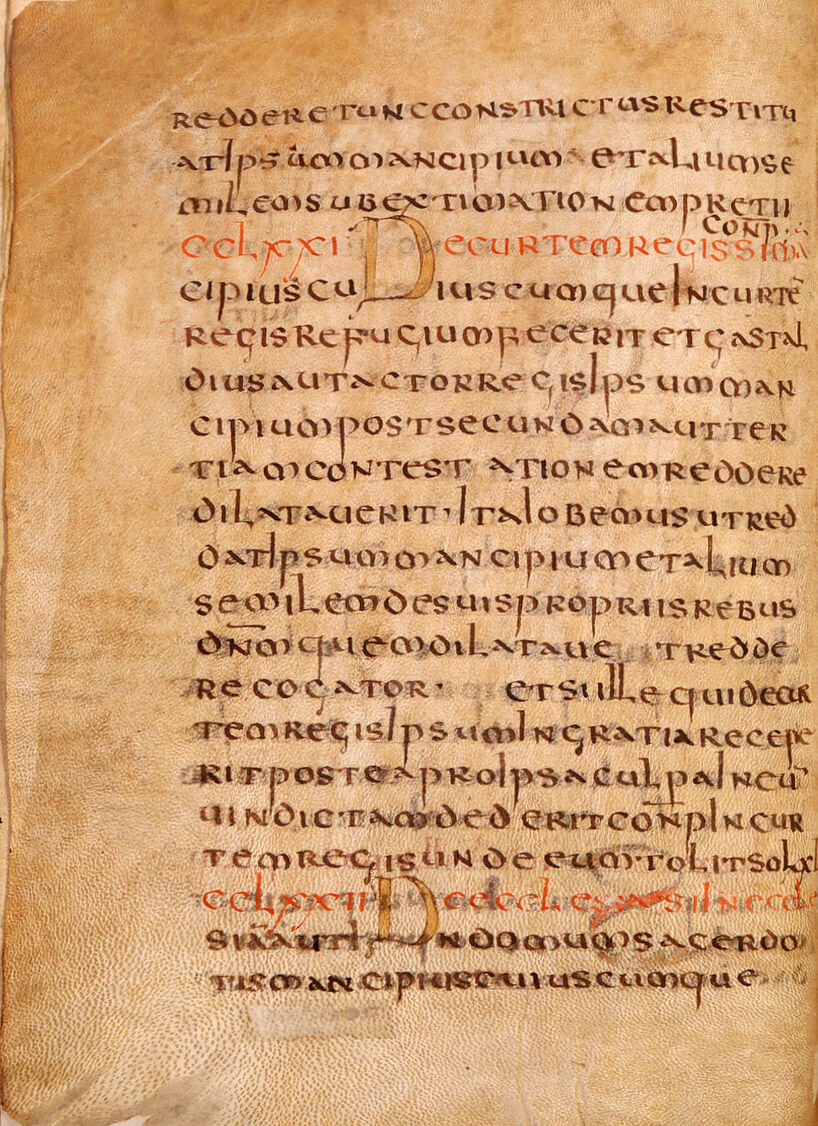 REDDERETUNCCONSTRICTUSRESTITU
ATIPSUMMANCIPIUM · ETALIUMSE
MILEMSUBEXTIMATIONEMPRETII
CONP̄.
CCLXXI DECURTEMREGISSIMA
CIPIUSCUIUSCUMQUEINCURTĒ
REGISREFUGIUMFECERITETGASTAL
DIUSAUTACTORREGISIPSUMMAN
CIPIUMPOSTSECUNDAMAUTTER
TIAMCONTESTATIONEMREDDERE
DILATAUERIT · ITAIOBEMUSUTRED
DATIPSUMMANCIPIUMETALIUM
SEMILEMDESUISPROPRIISREBUS
DN̄MQUEMDILATAUE TREDDE
RECOGATOR · ETSIILLEQUIDECUR
TEMREGISIPSUMINGRATIARECEPE
RITPOSTEAPROIPSACULPAINEŪ
UINDICTAMDEDERITCONP̄INCUR
TEMREGISUNDEEUMTOLITSOLXL
CCLXXII DEECCLESIASIINECCLE
SIAAUTINDOMUMSACERDO
TISMANCIPIUSCUIUSCUMQUE